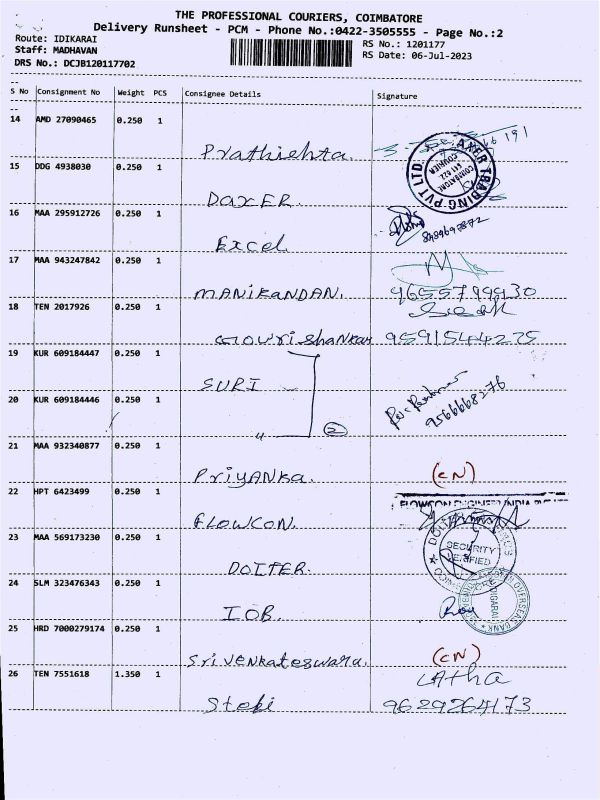 THE PROFESSIONAL COURIERS, COIMBATORE
Delivery Runsheet - PCM - Phone No.:0422-3505555 - Page No.:2
Route: IDIKARAI RS No.: 1201177
Staff: MADHAVAN RS Date: 06-Jul-2023
DRS No.: DCJB120117702
S No Consignment No Weight PCS Consignee Details Signature
14 AMD 27090465 0.250 1
Prathishta
15 DDG 4938030 0.250 1
DAXER
16 MAA 295912726 0.250 1
Excel 8489697872
17 MAA 943247842 0.250 1
MANIKANDAN. 9655799930
18 TEN 2017926 0.250 1
Gowrishankar 9591544275
19 KUR 609184447 0.250 1
SURI
20 KUR 609184446 0.250 1
" 2 9566668276
21 MAA 932340877 0.250 1
PriyANKa. (CN)
22 HPT 6423499 0.250 1
FLOWCON.
23 MAA 569173230 0.250 1
DOITER. SECURITY VERIFIED
24 SLM 323476343 0.250 1
IOB
25 HRD 7000279174 0.250 1
Sri Venkateswara. (CN)
26 TEN 7551618 1.350 1 LAtha
Stebi 9629264173